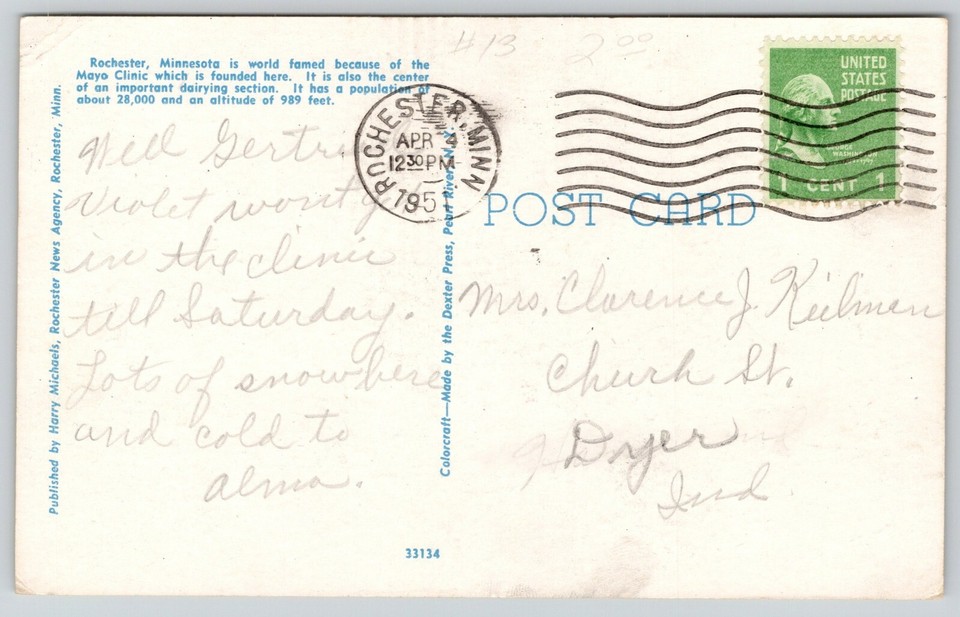 #13 2⁰⁰
Rochester, Minnesota is world famed because of the
Mayo Clinic which is founded here. It is also the center
of an important dairying section. It has a population of
about 28,000 and an altitude of 989 feet.
Well Gertru
Violet wont
in the clinic
till Saturday.
Lots of snow here
and cold to
Alma.
Published by Harry Michaels, Rochester News Agency, Rochester, Minn.
ROCHESTER, MINN
APR 4
12 30 PM
1951
Colorcraft—Made by the Dexter Press, Pearl River, N.
POST CARD
UNITED
STATES
POSTAGE
GEORGE
WASHINGTON
1 CENT 1
Mrs. Clarence J. Keilman
Church St.
Dyer
Ind
33134